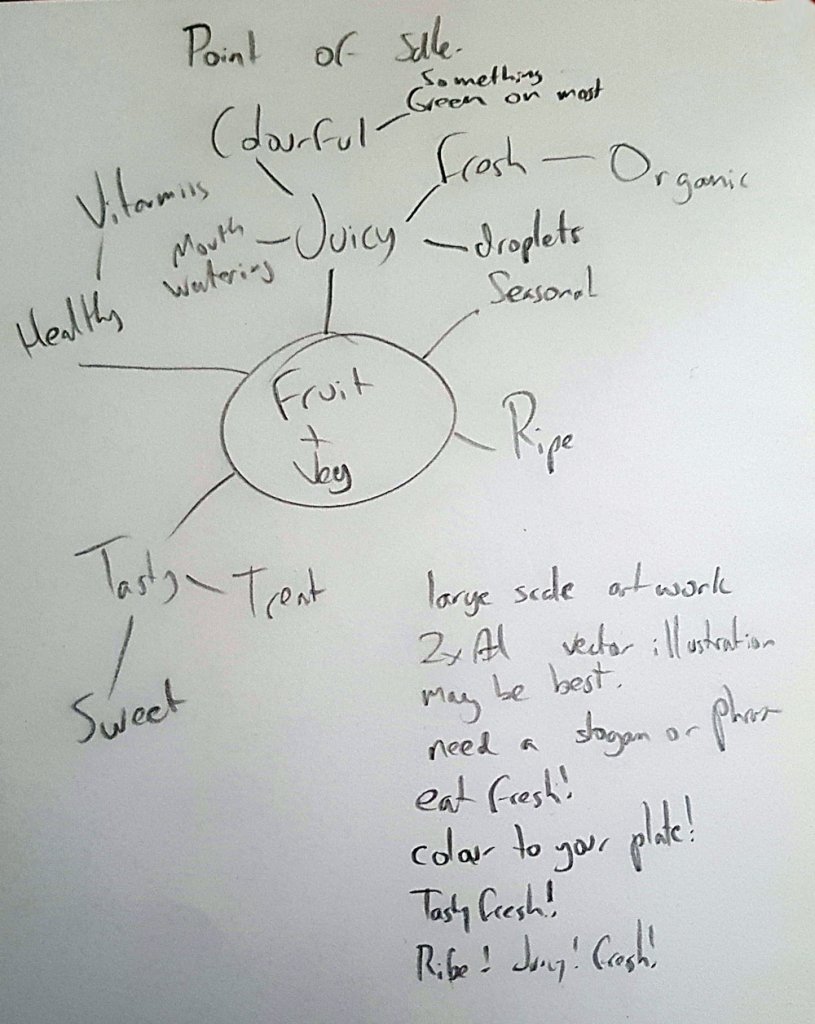 Point of sale.
Something
Green on most
Colourful
Fresh
Organic
Vitamins
Mouth
Watering
Juicy
droplets
Seasonal
Healthy
Fruit
+
Veg
Ripe
Tasty
Treat
Sweet
large scale artwork
2xA1 vector illustration
may be best.
need a slogan or phrase
eat fresh!
colour to your plate!
Tasty fresh!
Ribe! Juicy! fresh!